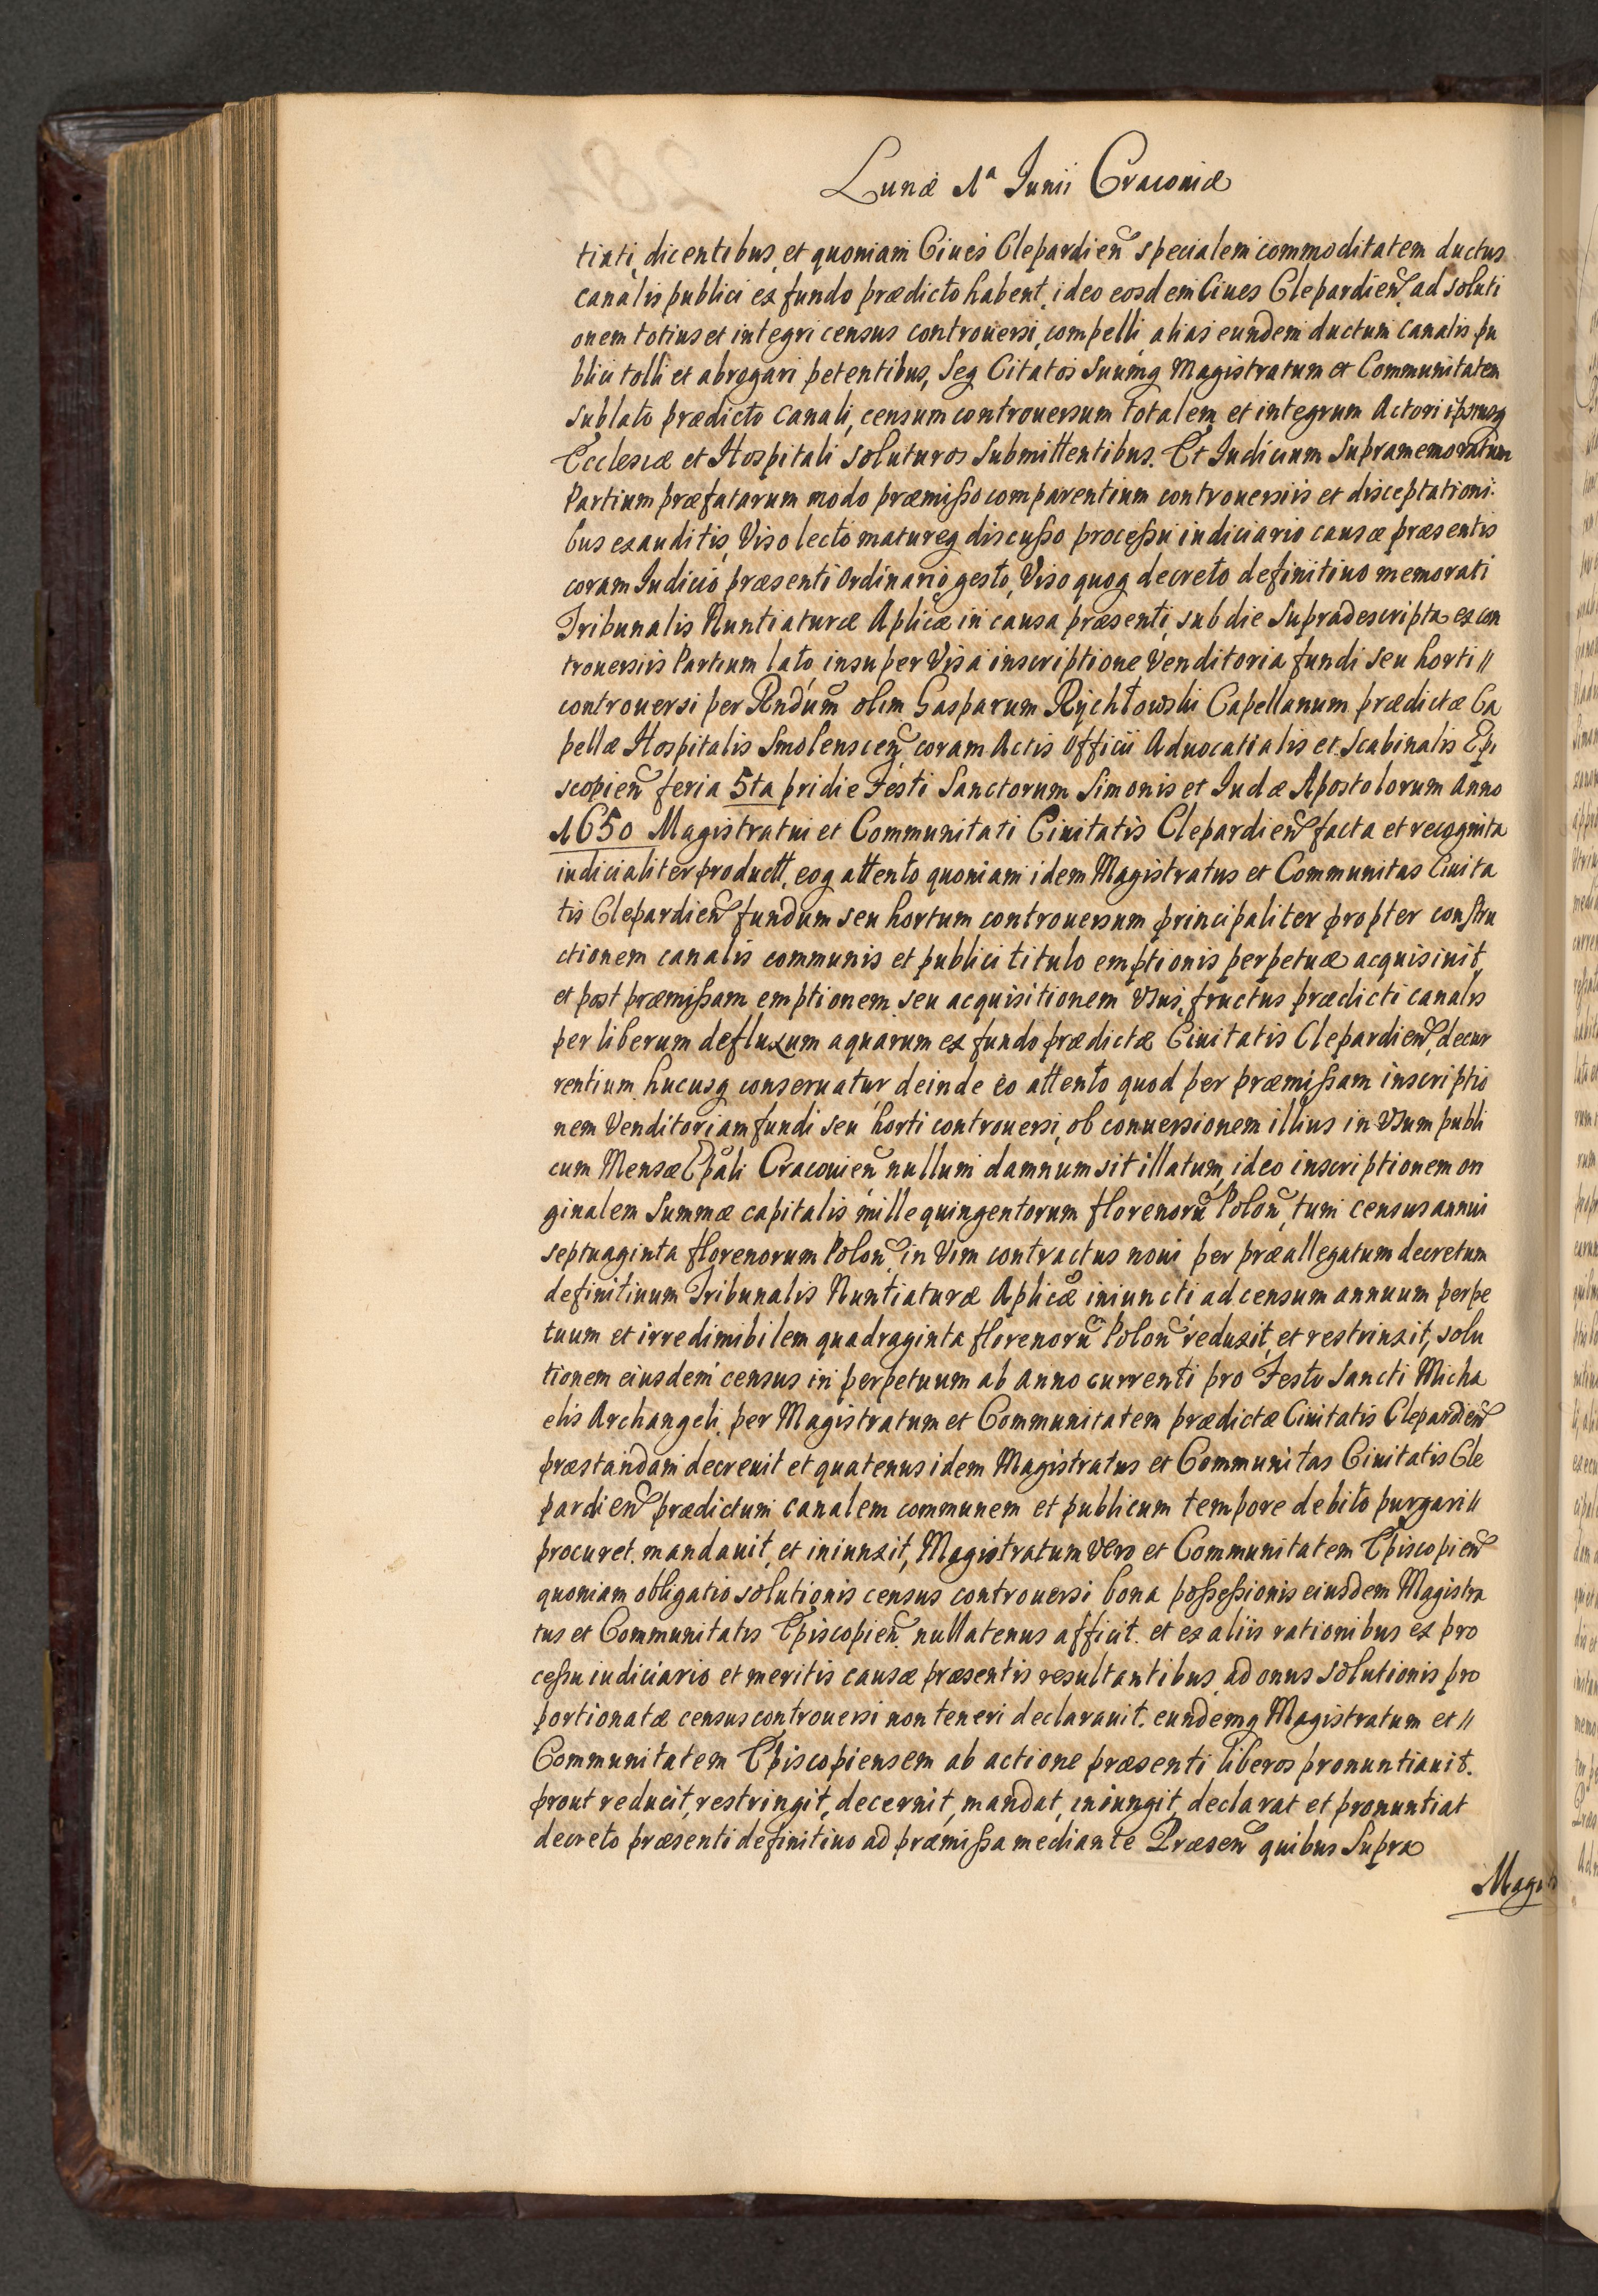 Lunæ 1ª Junii Cracoviæ
tiati, dicentibus, et quoniam Ciues Clepardien specialem commoditatem ductus
canalis publici ex fundo prædicto habent, ideo eosdem Ciues Clepardien ad soluti
onem totius et integri census controuersi, compelli, alias eundem ductum canalis pu
blici tolli et abrogari petentibus, Seq Citatos Suumq Magistratum et Communitatem
sublato prædicto canali, censum controuersum totalem et integrum Actori ipsiusq
Ecclesiæ et Hospitali soluturos submittentibus. Et Iudicium Supramemoratum
Partium præfatarum modo præmisso comparentium controuersiis et disceptationi-
bus exauditis, Viso lecto matureq discusso processu iudiciario causæ præsentis
coram Iudicio præsenti Ordinario gesto, Viso quoq decreto definitiuo memorati
Tribunalis Nuntiaturæ Aplicæ in causa præsenti, sub die Supradescripta ex con
trouersiis Partium lato, insuper Visa inscriptione Venditoria fundi seu horti //
controuersi per Rndum olim Gasparum Rychłowski Capellanum prædictæ Ca
pellæ Hospitalis Smolenscen coram Actis Officii Aduocatialis et Scabinalis Epi
scopien feria 5ta pridie Festi Sanctorum Simonis et Iudæ Apostolorum Anno
1650 Magistratui et Communitati Ciuitatis Clepardien facta et recognita
iudicialiter productt, eoq attento quoniam idem Magistratus et Communitas Ciuita
tis Clepardien fundum seu hortum controuersum principaliter propter constru
ctionem canalis communis et publici titulo emptionis perpetuæ acquisiuit,
et post præmissam emptionem seu acquisitionem Vsus, fructus prædicti canalis
per liberum defluxum aquarum ex fundo prædictæ Ciuitatis Clepardien, decur
rentium hucusq conseruatur, deinde eo attento quod per præmissam inscriptio
nem Venditoriam fundi seu horti controuersi, ob conuersionem illius in Vsum publi
cum Mensæ Epali Cracouien nullum damnum sit illatum, ideo inscriptionem ori
ginalem Summæ capitalis mille quingentorum florenoru Polon, tum census annui
septuaginta florenorum Polon in Vim contractus noui per præallegatum decretum
definitiuum Tribunalis Nuntiaturæ Aplicæ iniuncti ad censum annuum perpe
tuum et irredimibilem quadraginta florenoru Polon reduxit, et restrinxit, solu
tionem eiusdem census in perpetuum ab anno currenti pro Festo Sancti Micha
elis Archangeli per Magistratum et Communitatem prædictæ Ciuitatis Clepardien
præstandam decreuit et quatenus idem Magistratus et Communitas Ciuitatis Cle
pardien prædictum canalem communem et publicum tempore debito purgari //
procuret, mandauit, et iniunxit, Magistratum Vero et Communitatem Episcopien
quoniam obligatio solutionis census controuersi bona possessionis eiusdem Magistra
tus et Communitatis Episcopien nullatenus afficit, et ex aliis rationibus ex pro
cessu iudiciario et meritis causæ præsentis resultantibus, ad onus solutionis pro
portionatæ census controuersi non teneri declarauit. eundemq Magistratum et //
Communitatem Episcopiensem ab actione præsenti liberos pronuntiauit.
prout reducit, restringit, decernit, mandat, iniungit, declarat et pronuntiat
decreto præsenti definitiuo ad præmissa mediante Præsen quibus Supra